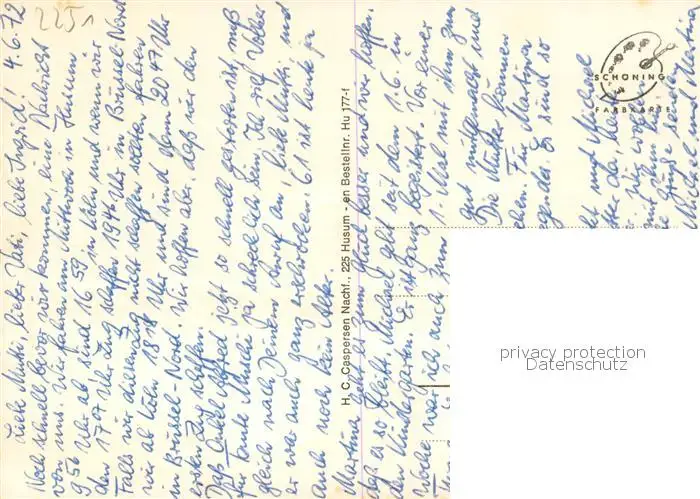 2251
Liebe Mutti, lieber Vati, liebe Ingrid! 4.6.72
Noch schnell bevor wir kommen, eine Nachricht
von uns. Wir fahren am Mittwoch in Husum
9 56 Uhr ab sind 16 59 in Köln und wenn wir
den 17 07 Uhr Zug schaffen 19 46 Uhr in Brüssel-Nord
Falls wir diesen Zug nicht schaffen sollten fahren
wir ab Köln 18 18 Uhr und sind dann 20 47 Uhr
in Brüssel-Nord. Wir hoffen aber, daß wir den
ersten Zug schaffen.
Daß Onkel Alfred jetzt so schnell gestorben ist, muß
für Tante Muschi ja schrecklich sein. Ich rief Volker
gleich nach Deinem Anruf an, liebe Mutti, und
er war auch ganz erschrocken. 61 ist heute ja
auch noch kein Alter.
Martina geht es zum Glück besser und wir hoffen,
daß es so bleibt. Michael geht seit dem 1.6. in
den Kindergarten. Er ist ganz begeistert. Vor einer
Woche war ich auch zum 1. Mal mit ihm zum
gut mitgemacht und
Die Mutter können
Für Martina
Es sind so
mit Michael
SCHÖNING
FARBKARTE
H. C. Caspersen Nachf., 225 Husum - en Bestellnr. Hu 177-f
privacy protection
Datenschutz